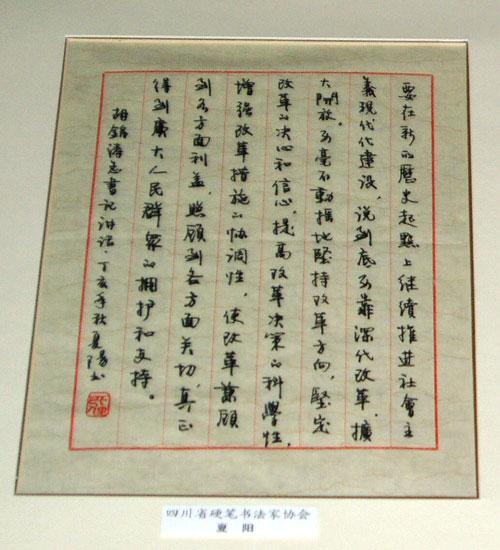 要在新的歷史起點上继續推進社會主
義現代化建设，说到底要靠深化改革、擴
大開放。要毫不動摇地堅持改革方向，堅定
改革的决心和信心，提高改革决策的科學性，
增强改革措施的协调性，使改革兼顧
到各方面利益、照顧到各方面关切，真正
得到廣大人民群衆的拥护和支持。
胡錦涛总書记讲话·丁亥年秋夏陽书
四川省硬笔书法家协会
夏 阳